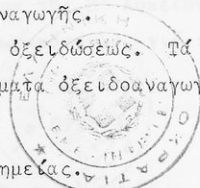 ναγωγῆς.
ὀξειδώσεως. Τά
ματα ὀξειδοαναγωγ
ημείας.